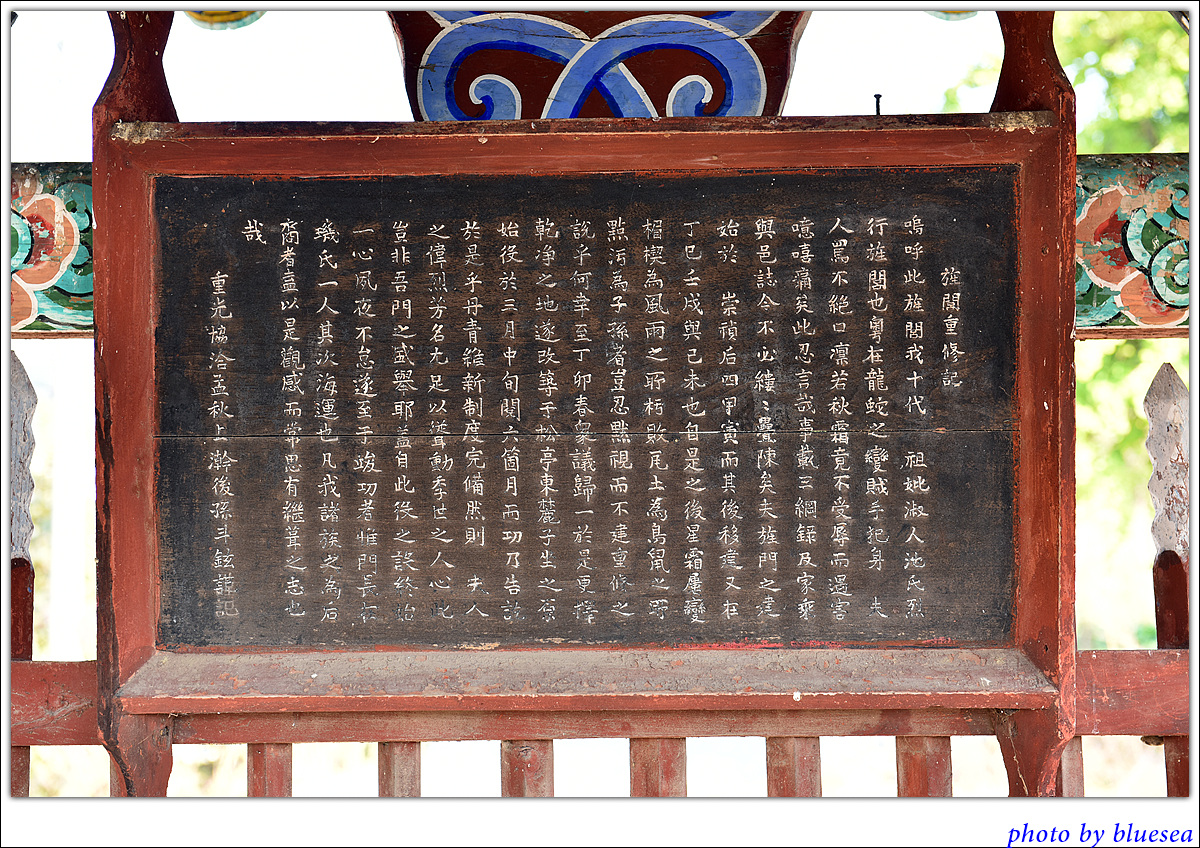 旌閭重修記
嗚呼此旌閭我十代 祖妣淑人池氏烈
行旌閭也粤在龍蛇之變賊手犯身 夫
人罵不絶口凛若秋霜竟不受辱而遇害
噫嘻痛矣此忍言哉事載三綱錄及家乘
與邑誌今不必縷〻疊陳矣夫旌門之建
始於 崇禎后四甲寅而其後移建又在
丁巳壬戌與己未也自是之後星霜屢變
楣楔為風雨之所朽敗瓦土為鳥鼠之所
點污為子孫者豈忍黙視而不建重修之
說乎何幸至丁卯春衆議歸一於是更擇
乾净之地遂改築于松亭東麓子坐之原
始役於三月中旬閱六箇月而功乃告訖
於是乎丹青維新制度完備然則 夫人
之偉烈芳名尤足以聳動季世之人心此
豈非吾門之盛擧耶盖自此役之設終始
一心夙夜不怠遂至于竣功者惟門長在
璣氏一人其次海運也凡我諸族之為后
裔者盍以是觀感而常思有繼葺之志也
哉
重光協洽孟秋上澣後孫斗鉉謹記
photo by bluesea